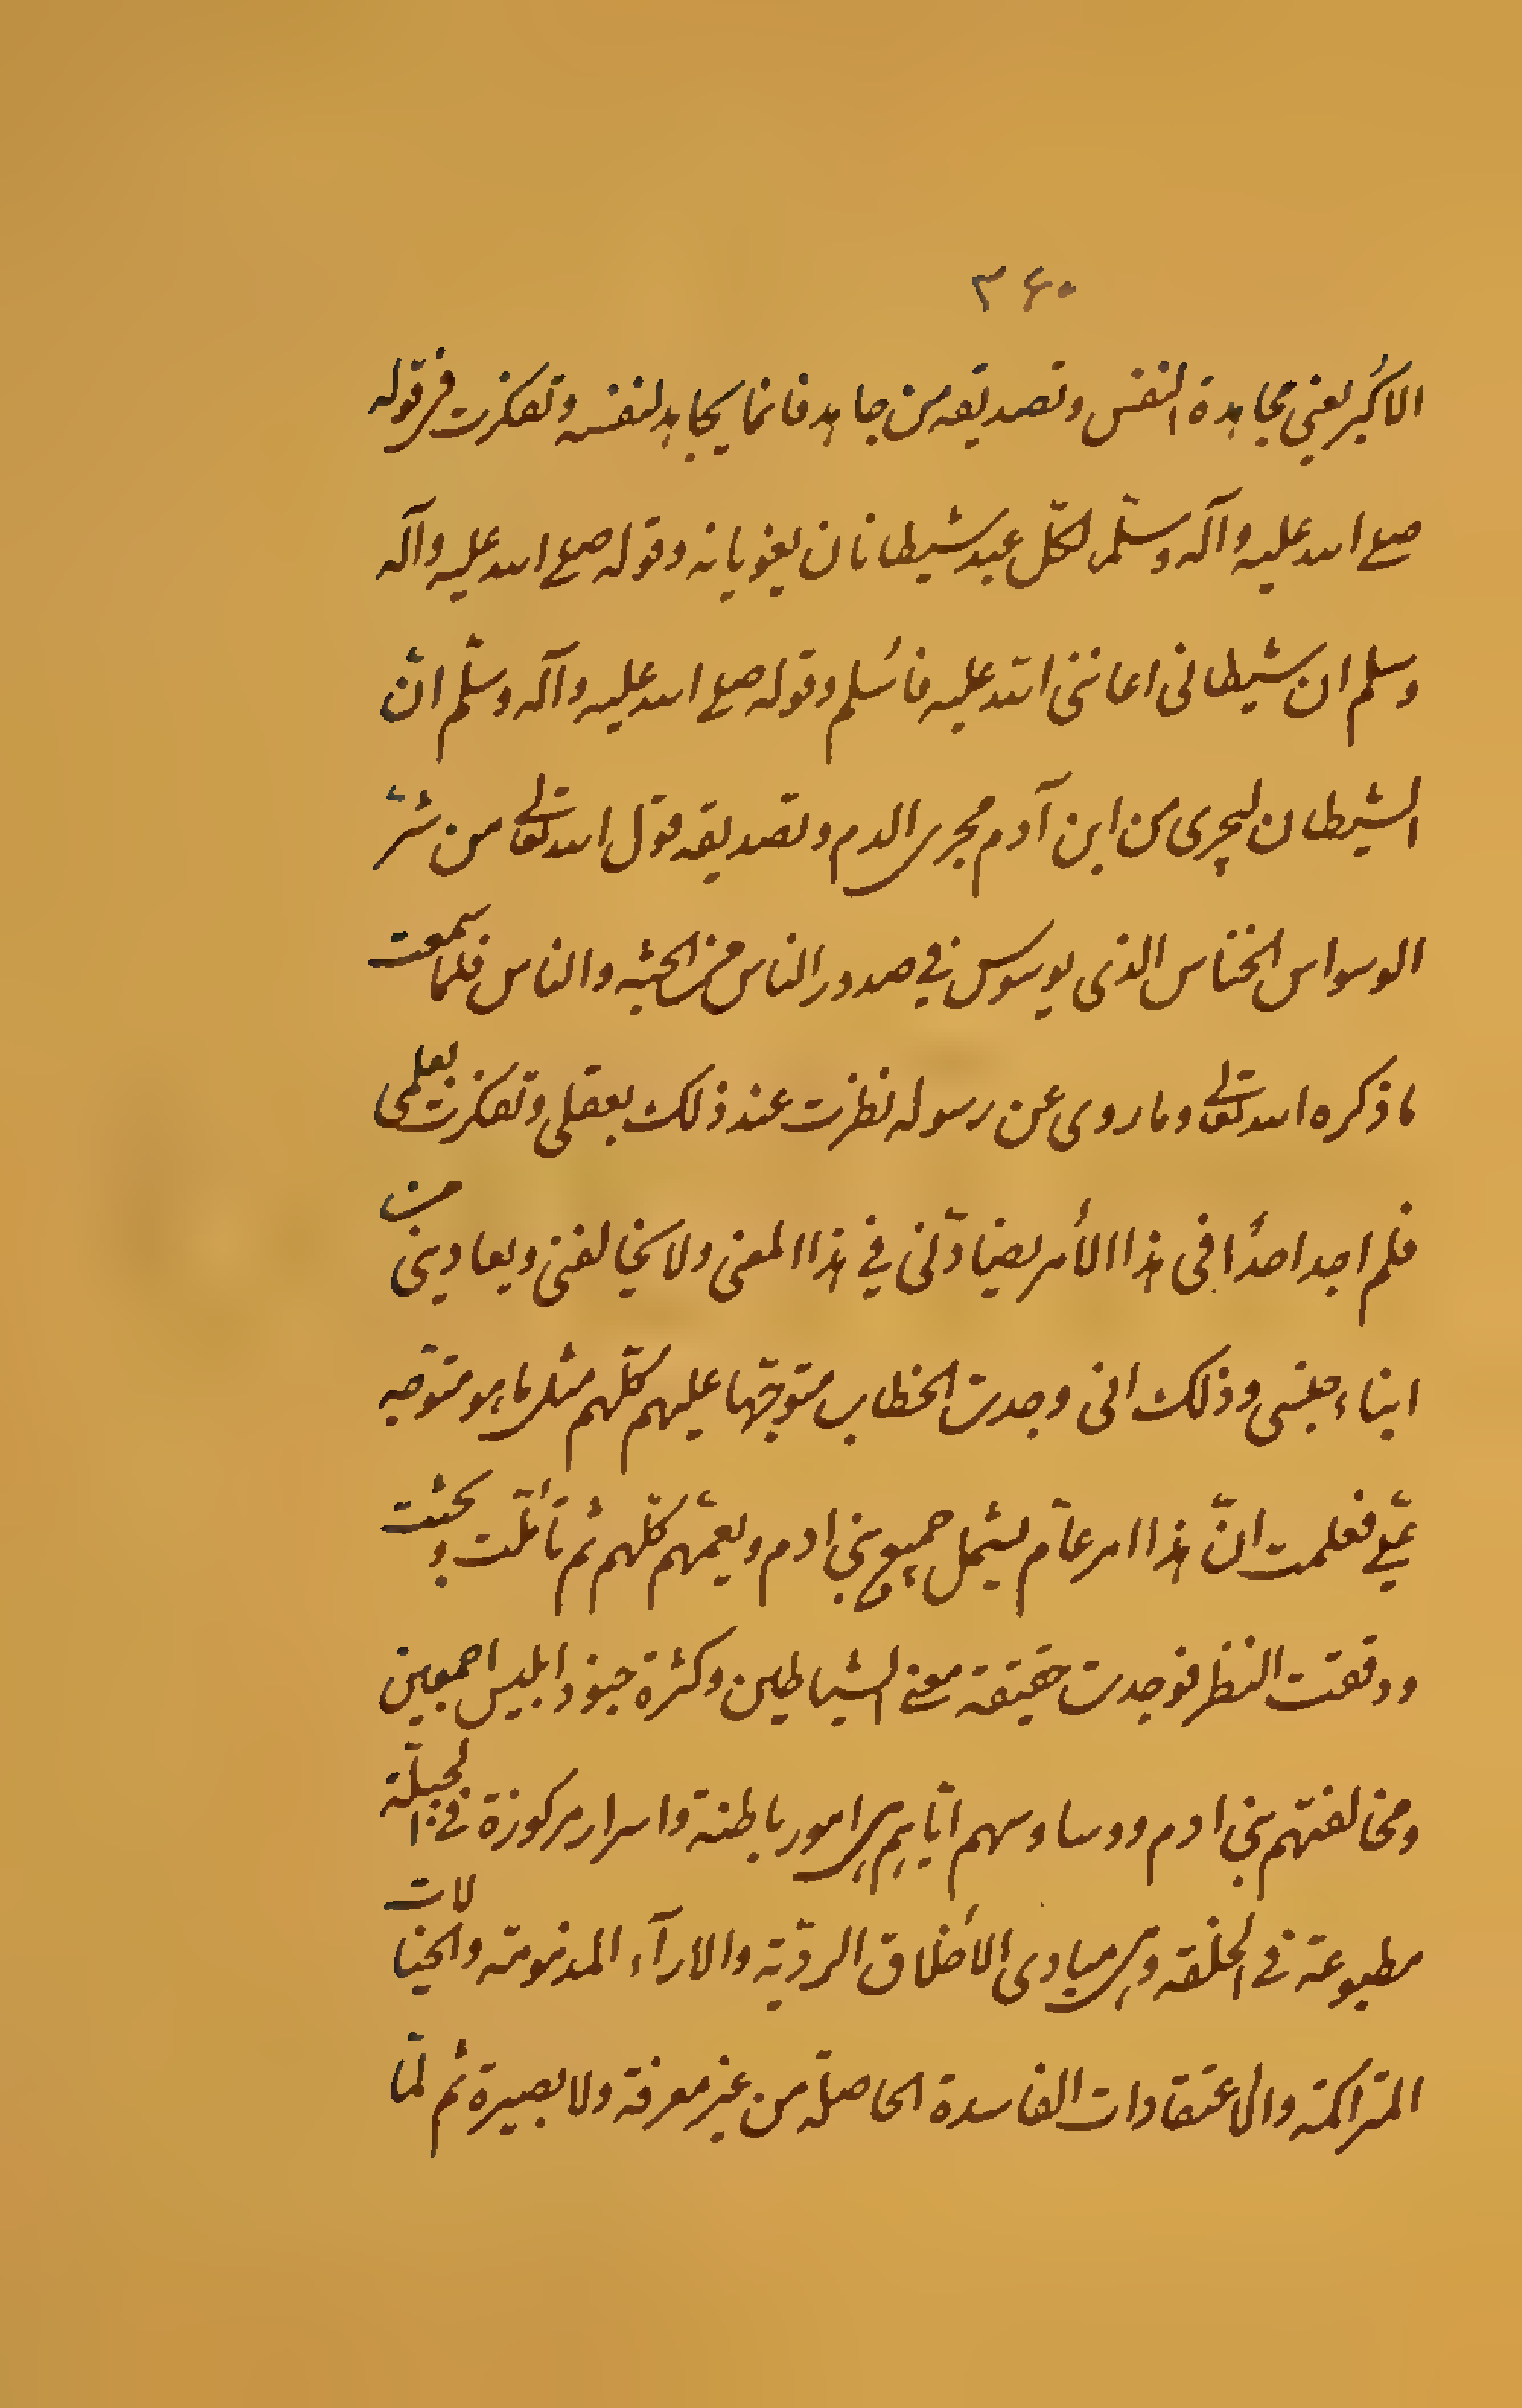 ۳۶۰
الاكبر يعني مجاهدة النفس وتصديقه من جاهد فانما يجاهد لنفسه وتفكرت في قوله
صلع الله عليه وآله وسلّم لكلّ عبد شيطانان يغويانه وقوله صلع الله عليه وآله
وسلم ان شيطانى اعاننى الله عليه فأسلم وقوله صلع الله عليه وآله وسلّم انّ
الشيطان ليجرى من ابن آدم مجرى الدم وتصديقه قول الله تعالى من شرّ
الوسواس الخناس الذى يوسوس في صدور الناس من الجنّه والناس فلما سمعت
ما ذكره الله تعالى وما روى عن رسوله نظرت عند ذلك بعقلى وتفكرت بعلمى
فلم اجد احداً فى هذا الأمر يضادّنى في هذا المعنى ولا يخالفنى ويعادينى من
ابناء جنسى وذلك انى وجدت الخطاب متوجّها عليهم كلّهم مثل ما هو متوجّه
عليّ فعلمت انّ هذا امر عامّ يشمل جميع بني ادم ويعمّهم كلّهم ثم تأمّلت وبحثت
ودققت النظر فوجدت حقيقة معنى الشياطين وكثرة جنود ابليس اجمعين
ومخالفتهم بني ادم ووساوسهم ايّاهم هى امور باطنة واسرار مركوزة في الجبلّة
مطبوعة في الخلقه وهى مبادى الأخلاق الرديّة والارآء المذمومة والخيالات
المتراكمة والاعتقادات الفاسدة الحاصلة من غير معرفة ولا بصيرة ثم لمّا